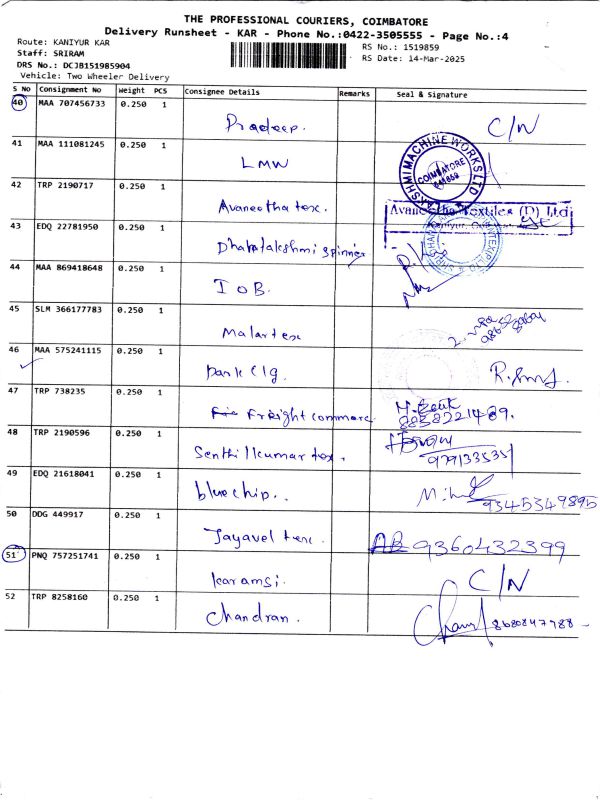 THE PROFESSIONAL COURIERS, COIMBATORE
Delivery Runsheet - KAR - Phone No.:0422-3505555 - Page No.:4
Route: KANIYUR KAR
RS No.: 1519859
Staff: SRIRAM
RS Date: 14-Mar-2025
DRS No.: DCJB151985904
Vehicle: Two Wheeler Delivery
S No Consignment No Weight PCS Consignee Details Remarks Seal & Signature
40 MAA 707456733 0.250 1
Pradeep. C/N
41 MAA 111081245 0.250 1
LMW
LAKSHMI MACHINE WORKS LTD
COIMBATORE
42 TRP 2190717 0.250 1
Avaneetha tex.
Avaneetha Textiles (P) Ltd
43 EDQ 22781950 0.250 1
Dhanalakshmi spinner
44 MAA 869418648 0.250 1
IOB.
45 SLM 366177783 0.250 1
Malar tex
46 MAA 575241115 0.250 1
park Clg.
47 TRP 738235 0.250 1
Freight commerc
8838221489.
48 TRP 2190596 0.250 1
Senthilkumar tex.
49 EDQ 21618041 0.250 1
bluechip..
9345349895
50 DDG 449917 0.250 1
Jayavel tex.
AB 9360432399
51 PNQ 757251741 0.250 1
karamsi. C/N
52 TRP 8258160 0.250 1
Chandran.
8680847988